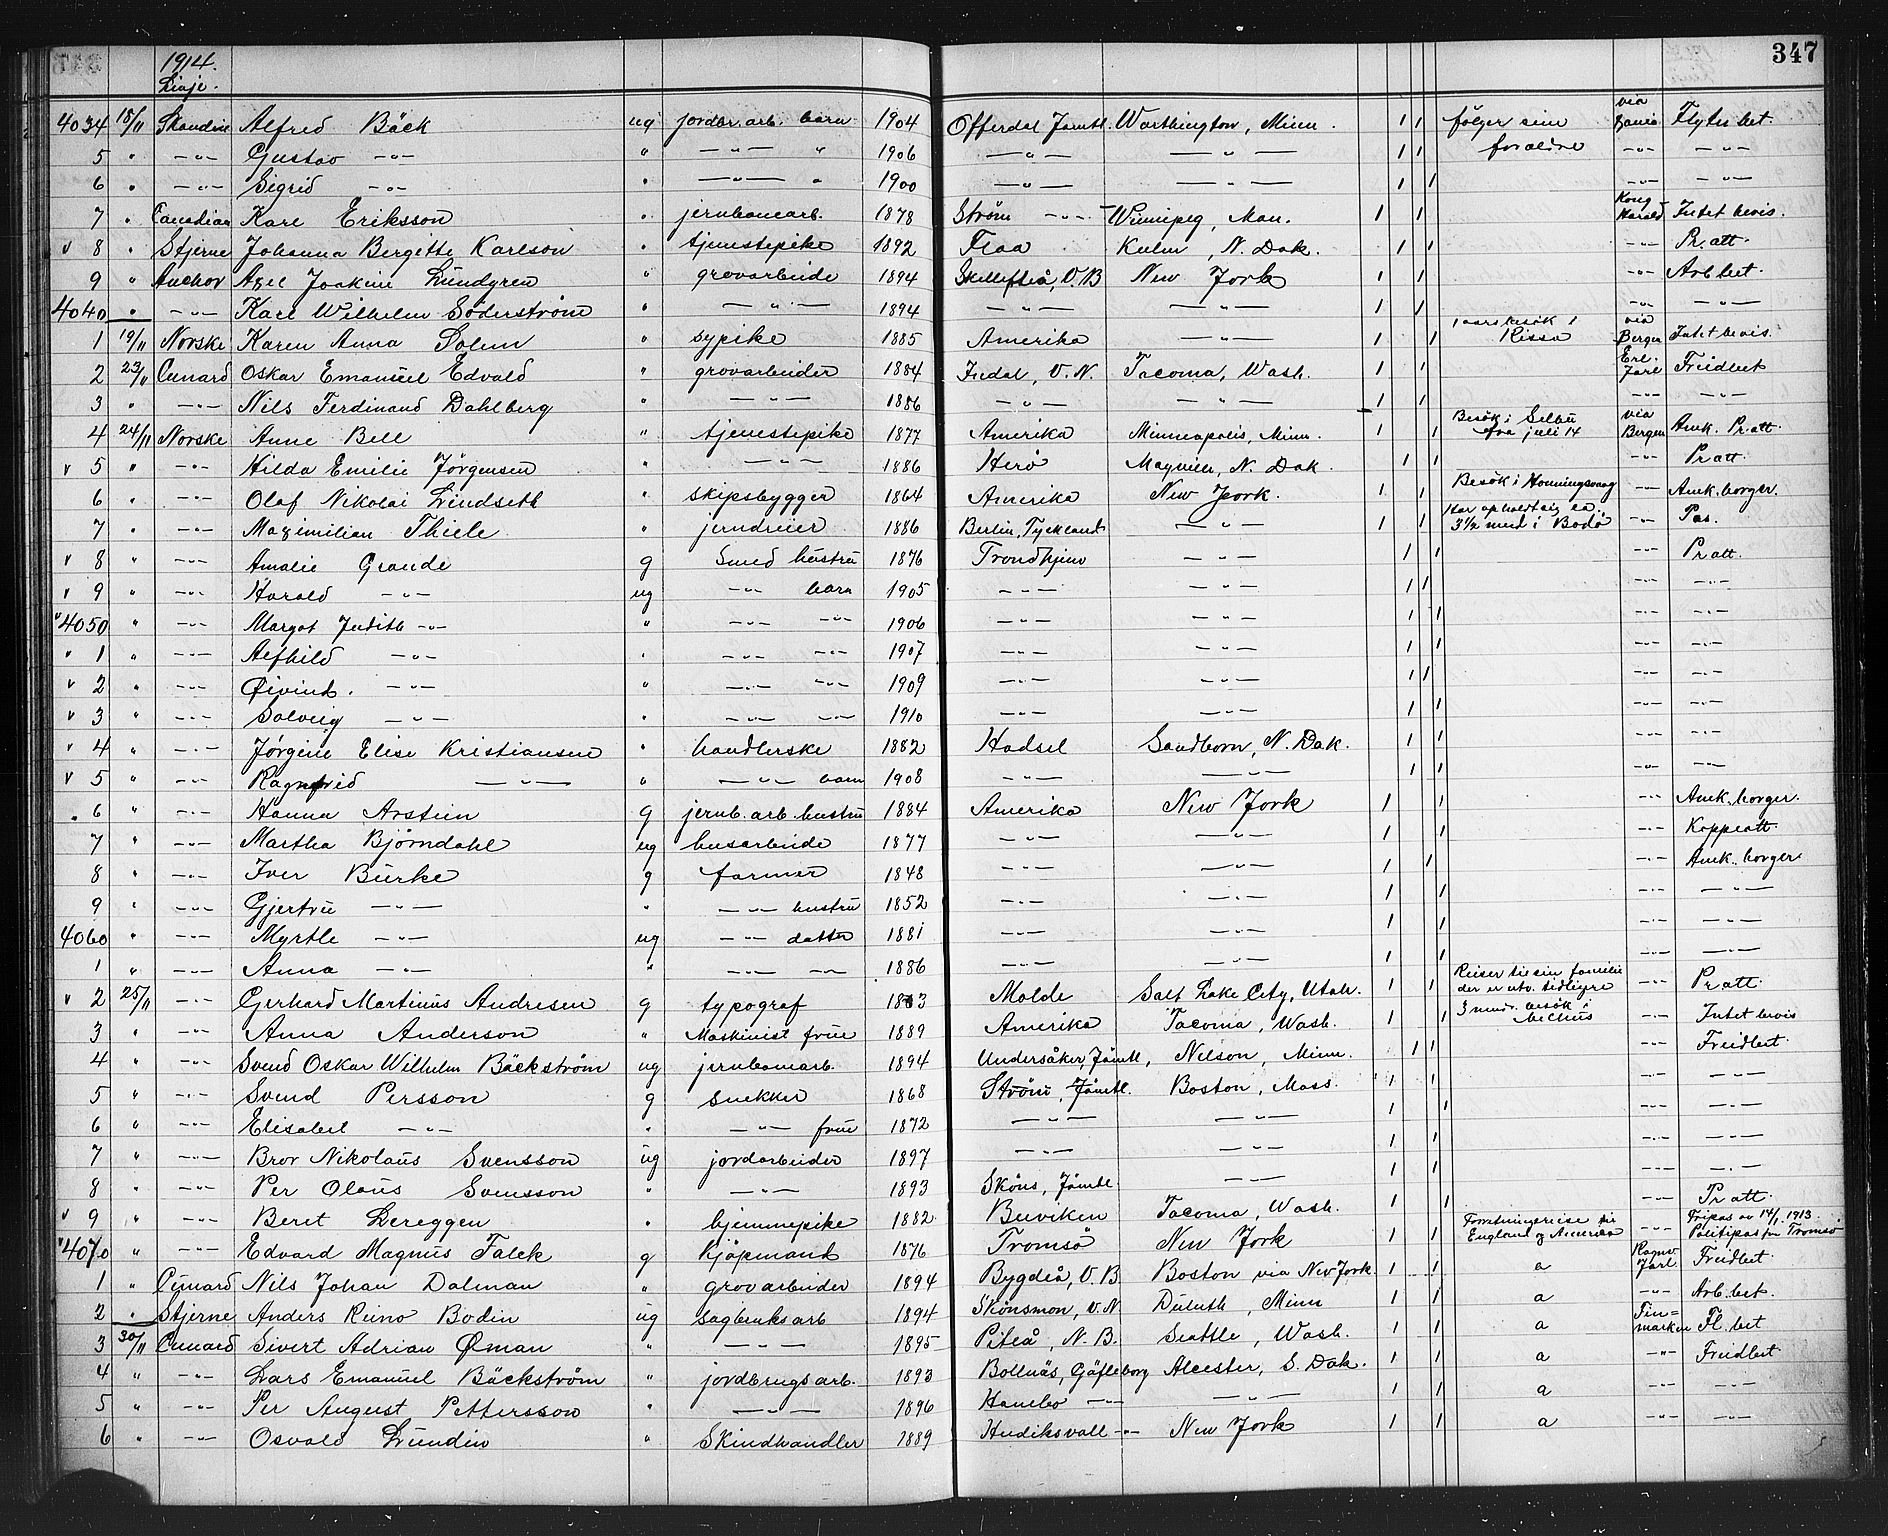 1914. 347
Linje.
4034 18/11 Skandin Alfred Bäck ug jordbr. arb. barn 1904 Offerdal Jämtl. Worthington, Minn. 1 1 følger sine via Flytn bet.
5 " —"— Gustav —"— " —"— " 1906 —"— —"— 1 1 forældre —"— —"—
6 " —"— Sigrid —"— " —"— " 1900 —"— —"— 1 1 —"— —"—
7 " Canadian Karl Eriksson " jernbanearb. 1878 Strøm —"— Winnipeg, Man. 1 1 Kong Harald Intet bevis.
v 8 " Stjerne Johanna Bergitte Karlson " tjenestepike 1892 Flaa Kulm, N. Dak. 1 1 —"— Pr att.
9 " Anchor Axel Joakim Lundgren " grovarbeide 1894 Skellefteå, V. B New York 1 1 —"— Arb bet.
4040 " —"— Karl Wilhelm Söderstrøm " —"— 1894 —"— —"— 1 1 —"— —"—
1 19/11 Norske Karen Anna Solem " sypike 1885 Amerika —"— 1 1 1 aars besøk i Rissa via Bergen Intet bevis.
2 23/11 Cunard Oskar Emanuel Edvald " grovarbeider 1884 Indal, V. N. Tacoma, Wash. 1 1 Erl. Jarl Freidbet
3 " —"— Nils Ferdinand Dahlberg " —"— 1886 —"— —"— 1 1 —"— —"—
4 24/11 Norske Anne Bell " tjenestepike 1877 Amerika Minneapolis, Minn. 1 1 Besøk i Selbu fra juli 14 via Bergen Amk. Pr. att.
v 5 " —"— Hilda Emilie Jørgensen " —"— 1886 Herø N. Dak. 1 1 —"— Pr att.
6 " —"— Olaf Nikolai Lindseth " skipsbygger 1864 Amerika New York. 1 1 Besøk i Honningsvaag —"— Amk. borger.
7 " —"— Maximilian Thiele " jerndreier 1886 Berlin, Tyskland —"— 1 1 Har opholdt sig ca. 3½ mnd i Bodø —"— Pas.
v 8 " —"— Amalie Grande g Smed hustru 1876 Trondhjem —"— 1 1 —"— Pr att.
v 9 " —"— Harald —"— ug —"— barn 1905 —"— —"— 1 1 —"— —"—
v 4050 " —"— Margot Judith —"— " —"— —"— 1906 —"— —"— 1 1 —"— —"—
v 1 " —"— Alfhild —"— " —"— —"— 1907 —"— —"— 1 1 —"— —"—
v 2 " —"— Øivind. —"— " —"— —"— 1909 —"— —"— 1 1 —"— —"—
v 3 " —"— Solveig —"— " —"— —"— 1910 —"— —"— 1 1 —"— —"—
v 4 " —"— Jørgine Elise Kristiansen " handlerske 1882 Hadsel Sandborn, N. Dak. 1 1 —"— —"—
v 5 " —"— Ragnfrid —"— " —"— barn 1908 —"— —"— 1 1 —"— —"—
. 6 " —"— Hanna Arstein g jernb. arb. hustru 1884 Amerika New York 1 1 —"— Amk. borger.
7 " —"— Martha Bjørndahl ug husarbeide 1877 —"— —"— 1 1 —"—
8 " —"— Iver Burke g farmer 1848 —"— —"— 1 1 —"— Amk. borger.
9 " —"— Gjertru —"— " —"— hustru 1852 —"— —"— 1 1 —"—
4060 " —"— Myrtle —"— ug —"— datter 1881 —"— —"— 1 1 —"—
1 " —"— Anna —"— " —"— —"— 1886 —"— —"— 1 1 —"—
v 2 25/11 —"— Gerhard Martinus Andresen g typograf Molde Salt Lake City, Utah. 1 1 Reiser til sin familie der er utv. tidligere —"— Pr att.
3 " —"— Anna Anderson " Maskinist frue 1889 Amerika Tacoma, Wash. 1 1 3 mnd. besøk i Melhus —"— Intet bevis
4 " —"— Svend Oskar Wilhelm Bäckstrøm ug jernbanearb. 1894 Undersåker, Jämtl, Nelson, Minn. 1 1 —"— Freidbet.
5 " —"— Svend Persson g snekker 1868 Strøm, Jämtl. Boston, Mass. 1 1 —"— —"—
6 " —"— Elisabet —"— " —"— frue 1872 —"— —"— 1 1 —"— —"—
7 " —"— Bror Nikolaus Svensson ug jordarbeider 1897 —"— —"— 1 1 —"— —"—
8 " —"— Per Olaus Svensson " —"— 1893 Sköns, Jämtl. —"— 1 1 —"— —"—
v 9 " —"— Beret Lereggen " hjemmepike 1882 Buviken Tacoma, Wash. 1 1 —"— Pr att.
v 4070 " —"— Edvard Magnus Falck g kjøpmand 1876 Tromsø New York 1 1 Forretningsreise til England og Amerika —"— Fripas av 14/1 1913. Politipas fra Tromsø
1 " Cunard Nils Johan Dalman " grovarbeider 1894 Bygdeå, V. B Boston via New York. 1 1 a Ragnv Jarl Freidbet
2 " Stjerne Anders Reino Bodin ug sagbruksarb 1894 Skönsmon, V. N Duluth, Minn 1 1 a —"— Arb. bet.
3 30/11 Cunard Sivert Adrian Øman " —"— 1895 Piteå, N. B. Seattle, Wash. 1 1 a Finmarken Fl. bet
4 " —"— Lars Emanuel Bäckström " jordbrugsarb. 1893 Bollnäs, Gäfleborg Alcester, S. Dak. 1 1 a —"— Freidbet
5 " —"— Per August Pettersson " —"— 1896 Hanebo —"— —"— 1 1 a —"— —"—
6 " —"— Osvald Lundin " Skindhandler 1889 Hudiksvall —"— New York 1 1 a —"— —"—